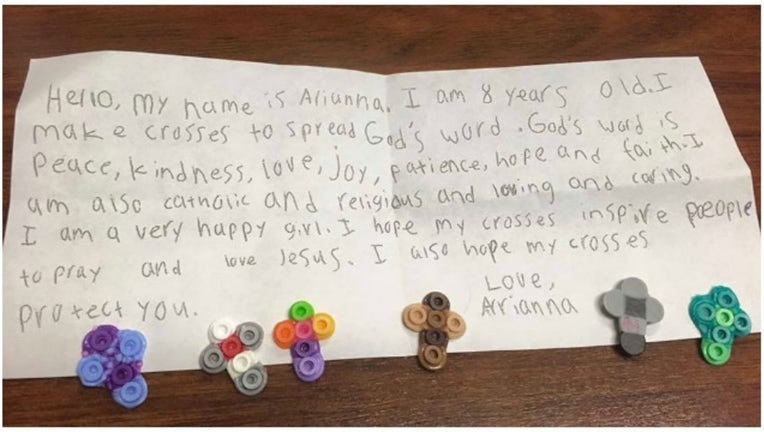 Hello, my name is Arianna. I am 8 years old. I
make crosses to spread God's word. God's word is
Peace, kindness, love, joy, patience, hope and faith. I
am also catholic and religious and loving and caring.
I am a very happy girl. I hope my crosses inspire paeople
to pray and love Jesus. I also hope my crosses
protect you.
Love,
Arianna